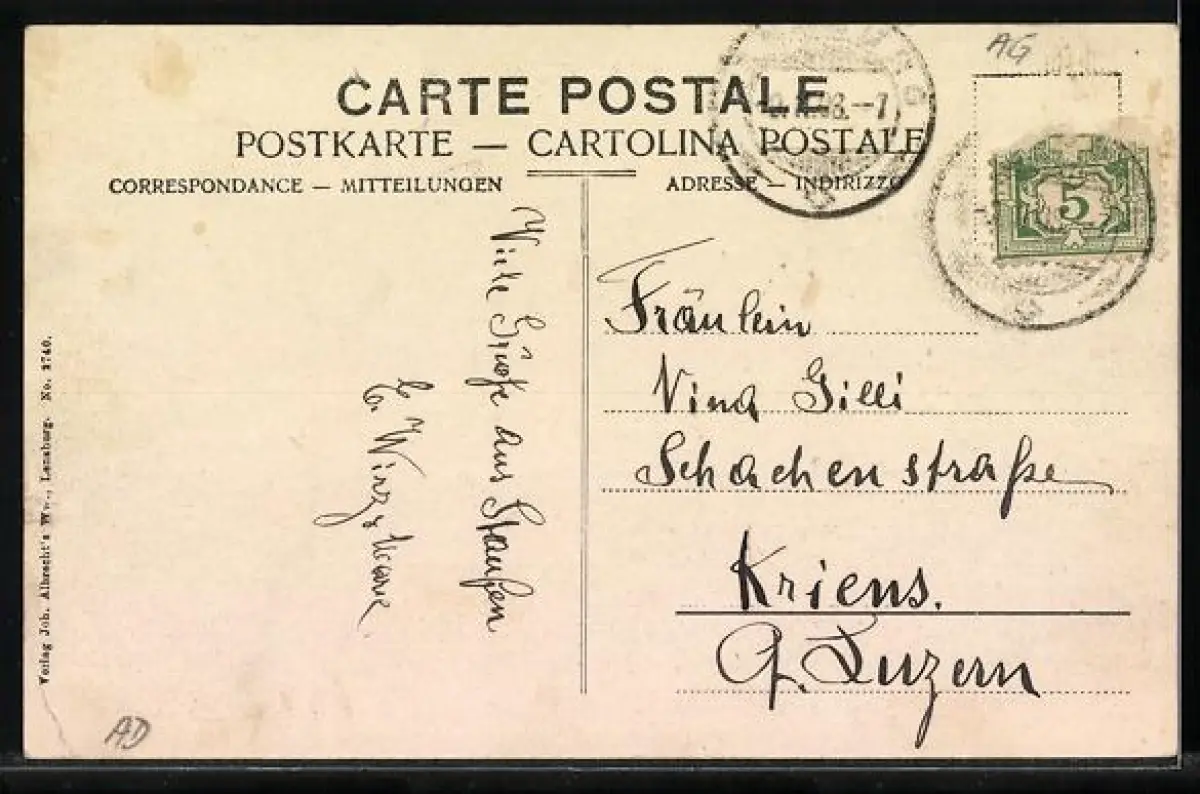 AG
CARTE POSTALE
POSTKARTE — CARTOLINA POSTALE
CORRESPONDANCE — MITTEILUNGEN
ADRESSE — INDIRIZZO
5
Viele Grüße aus Staufen
Fräulein
Nina Gilli
Schachenstraße
Kriens.
Luzern
Verlag Joh. Albrecht's Ww., Lenzburg. No. 2740.
AD